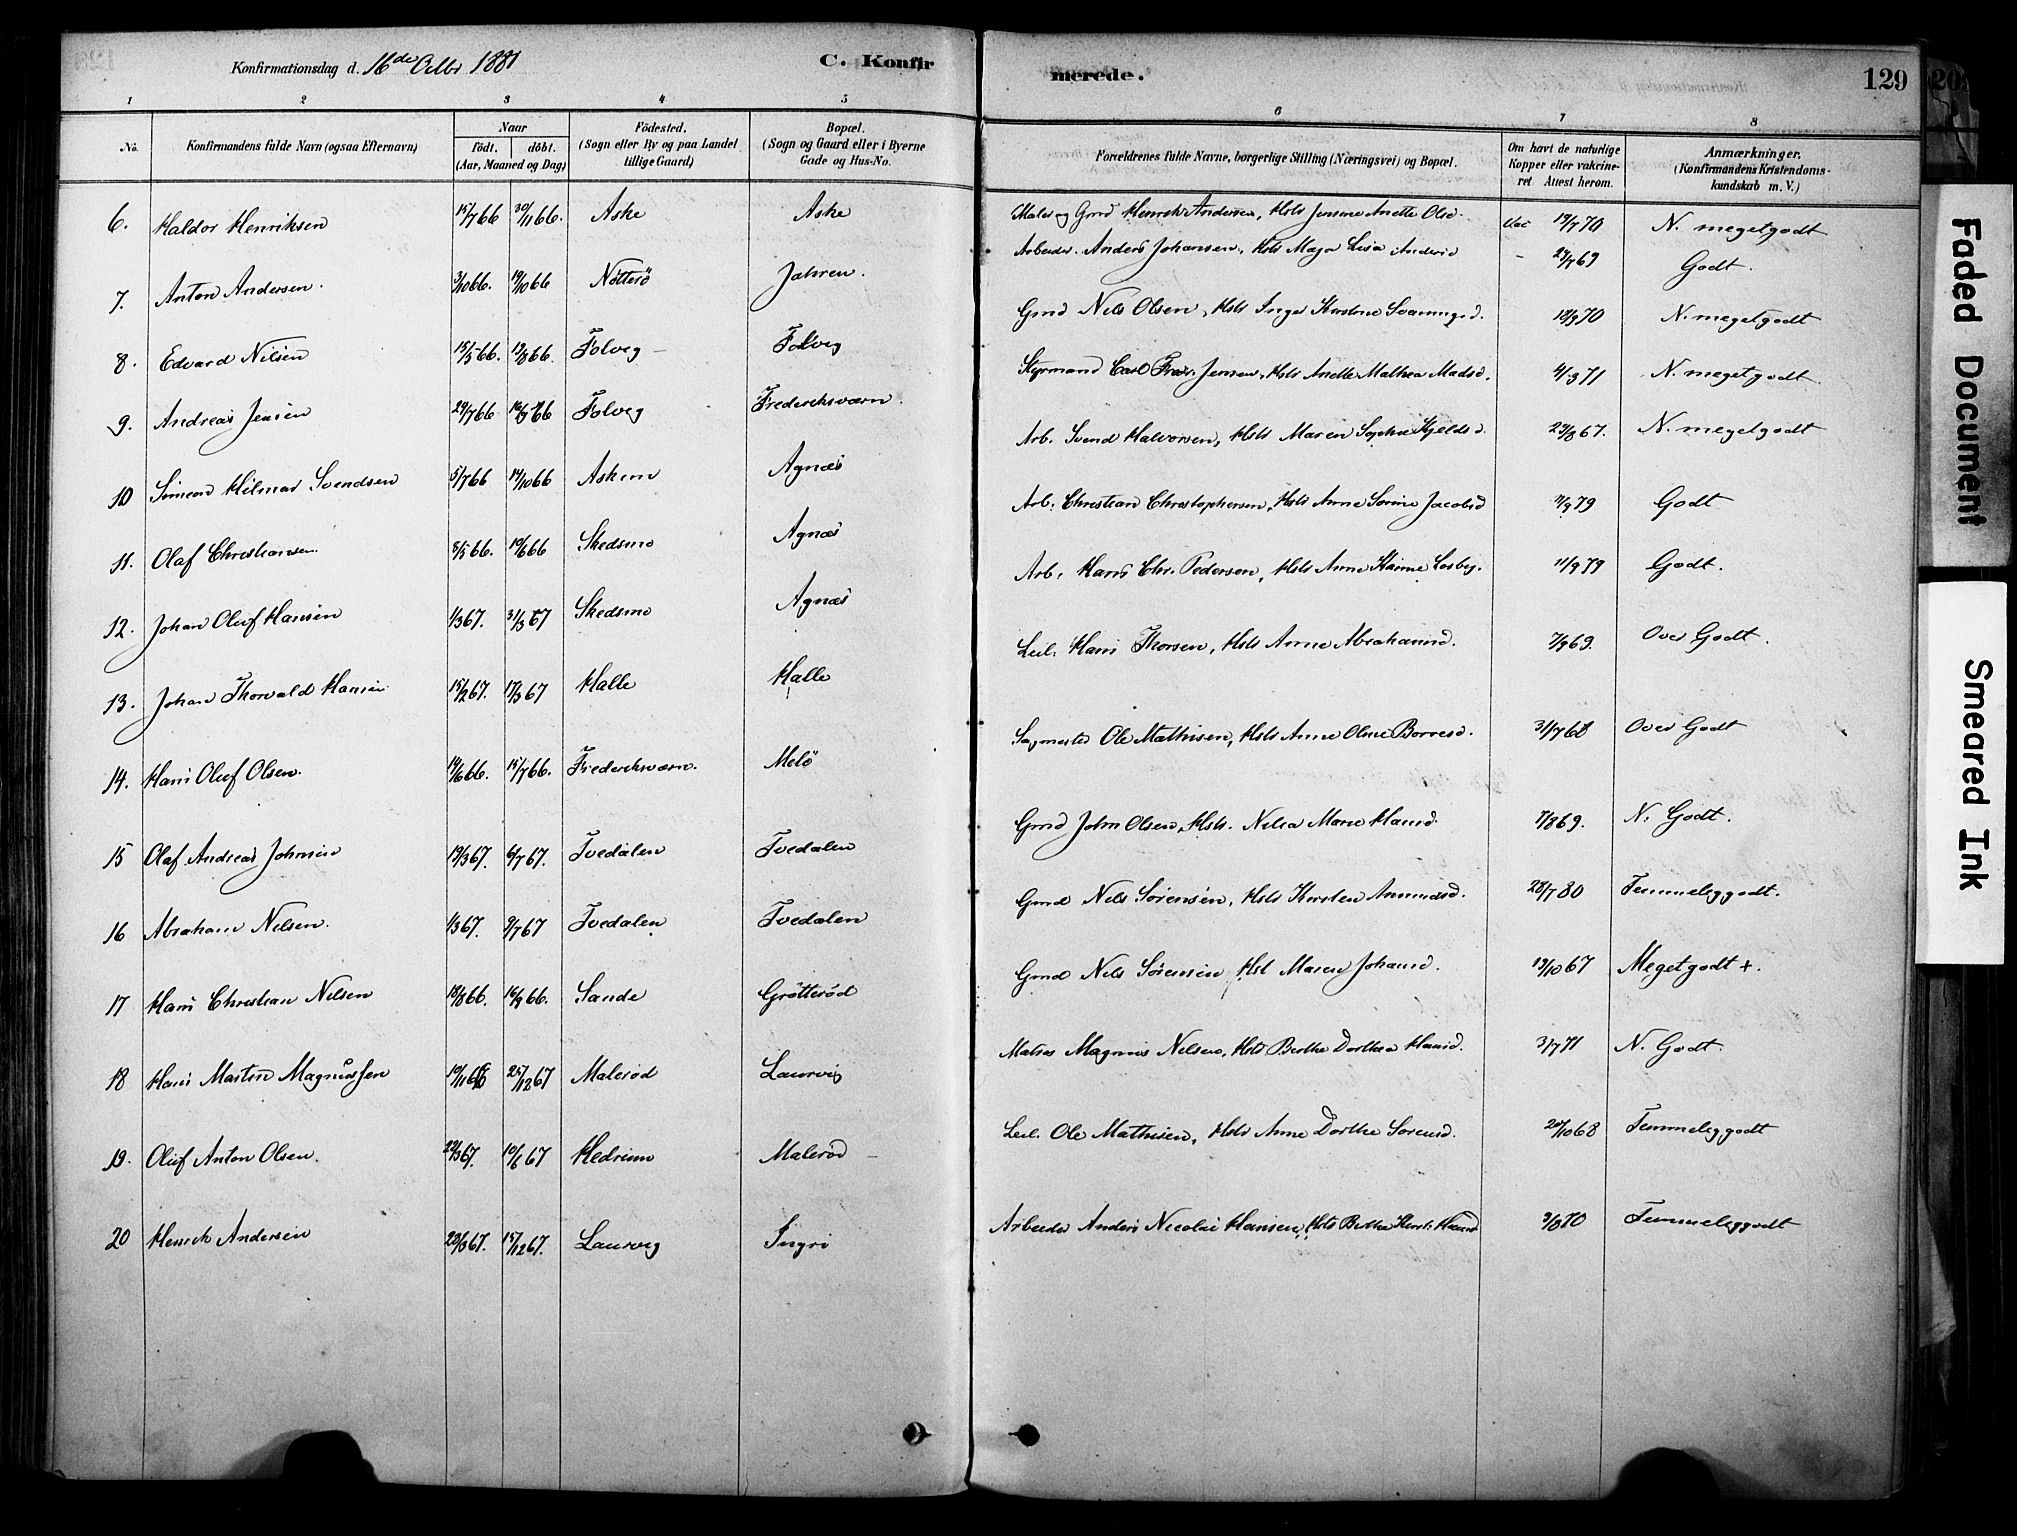 Konfirmationsdag d. 16de Octbr 1881
C. Konfir
merede.
129
1 2 3 4 5 6 7 8
No.
Konfirmandens fulde Navn (ogsaa Efternavn)
Naar
födt. döbt.
(Aar, Maaned og Dag)
Födested.
(Sogn eller By og paa Landet
tillige Gaard)
Bopæl.
(Sogn og Gaard eller i Byerne
Gade og Hus-No.
Forældrenes fulde Navne, borgerlige Stilling (Næringsvei) og Bopæl.
Om havt de naturlige
Kopper eller vakcine-
ret. Attest herom.
Anmærkninger.
(Konfirmandens Kristendoms-
kundskab m. V.)
6. Haldor Henriksen 15/7 66 30/11 66. Aske Aske Maler og Grnd Henrik Andersen, Hstr Jensine Anette Olsd. Vac 19/7 70 N. megetgodt
7. Anton Andersen. 3/10 66. 19/10 66 Nötterö Jahren. Arbeider. Anders Johansen, Hstr Maja Lisa Andersd - 27/7 69 Godt.
8. Edvard Nilsen 15/5 66. 19/8 66 Folveg Folveg Grnd Nels Olsen, Hstr Inger Kirstine 18/9 70 N. megetgodt
9. Andreas Jensen 24/7 66 16/9 66 Folveg Frederiksværn. Styrmand Carl Jensen, Hstr Anette Mathea Madsd. 4/3 71 N. megetgodt.
10 Simeon Hilmar Svendsen 5/7 66 14/10 66 Askem Agnæs Arb. Svend Halvorsen, Hstr Maren Sophie Kjeldsd. 29/8 67. N. megetgodt
11. Olaf Christiansen. 8/5 66. 10/6 66 Skedsmo Agnæs Arb: Christian Christophersen, Hstr Anne Sorine Jacobsd 11/9 79 Godt
12. Johan Oluf Hansen 1/3 67. 31/3 67 Skedsmo Agnæs Arb: Hans Chr. Pedersen, Hstr Anne Karine Losby. 11/9 79 Godt.
13. Johan Thorvald Hansen 15/2 67. 17/3 67 Halle Halle Leil. Hans Thorsen, Hstr Anne Abrahamsd. 7/9 69. Over Godt.
14. Hans Oluf Olsen. 14/6 66. 15/7 66. Frederiksværn. Melö Sagmester Ole Mathisen, Hstr Anne Oline Borresd. 31/7 68 Over Godt
15 Olaf Andreas Johnsen 19/3 67. 6/7 67. Tvedalen Tvedalen Grnd John Olsen, Hstr. Nilia Marie Hansd. 7/8 69. N. Godt.
16 Abraham Nilsen. 1/3 67. 9/7 67 Tvedalen Tvedalen Grnd Nels Sörensen, Hstr Kirsten Ammundsd. 28/7 80 Temmeliggodt.
17 Hans Christian Nilsen 18/8 66. 16/9 66. Sande Gröttesöd Grnd Nils Sörensen Hst Maren Johansd. 13/10 67 Megetgodt +.
18 Hans Martin Magnussen 10/11 66 25/12 67 Malerod Laurvig Matros Magnus Nilsen, Hstr Berthe Dorthea Hansd. 3/7 71 N. Godt.
19. Oluf Anton Olsen. 22/3 67. 10/6 67 Hedrum Maleröd Leil. Ole Mathisen, Hstr Anne Dorthe Sorensd. 20/10 68 Temmeliggodt
20 Henrik Andersen 23/3 67. 15/12 67. Laurvig Ingri Arbeider Anders Nicolai Hansen, Hstr Berthe Kirst: Hansd 3/8 70 Temmeliggodt
Faded Document
Smeared Ink